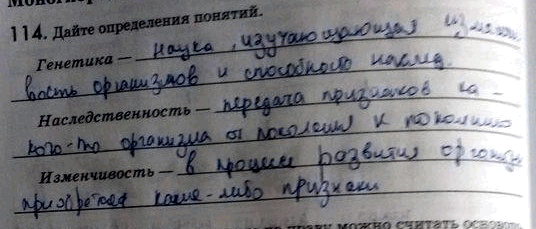 114. Дайте определения понятий.
Генетика — наука, изучающая изменчи
вость организмов и способность наслед.
Наследственность — передача признаков ка -
кого-то организма от поколения к поколению
Изменчивость — в процессе развития организм
приобретает какие-либо признаки
можно считать